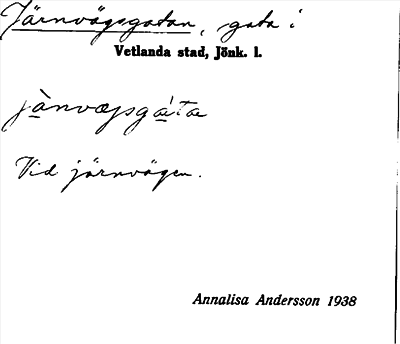 Järnvägsgatan, gata i
Vetlanda stad, Jönk. l.
jànvæpsgáta
Vid järnvägen.
Annalisa Andersson 1938